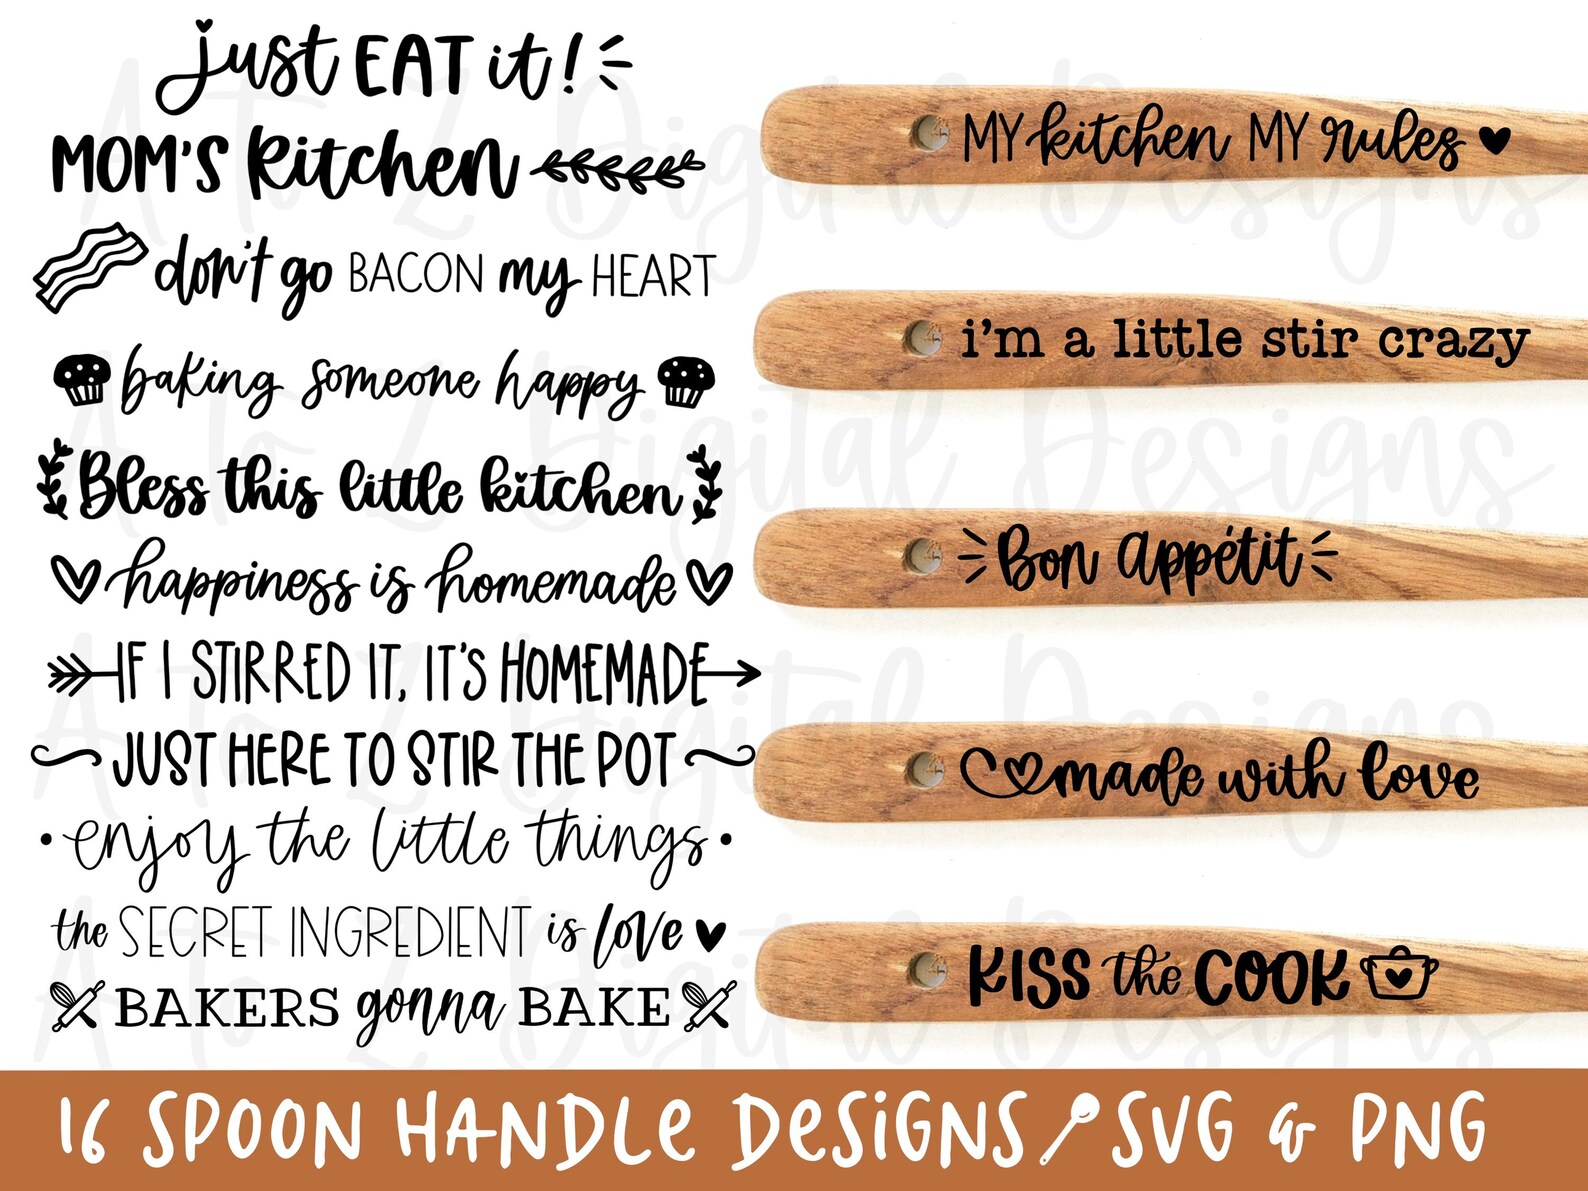 just EAT it!
MOM'S kitchen
don't go BACON my HEART
baking someone happy
Bless this little kitchen
happiness is homemade
IF I STIRRED IT, IT'S HOMEMADE
JUST HERE TO STIR THE POT
enjoy the little things
the SECRET INGREDIENT is love
BAKERS gonna BAKE
MY kitchen MY rules
i'm a little stir crazy
Bon appétit
made with love
KISS the COOK
16 SPOON HANDLE DESIGNS SVG & PNG
A to Z Digital Designs
A to Z Digital Designs
A to Z Digital Designs
A to Z Digital Designs